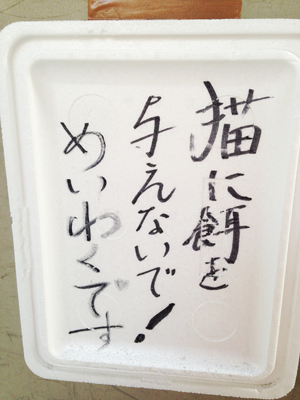 猫に餌を
与えないで!
めいわくです